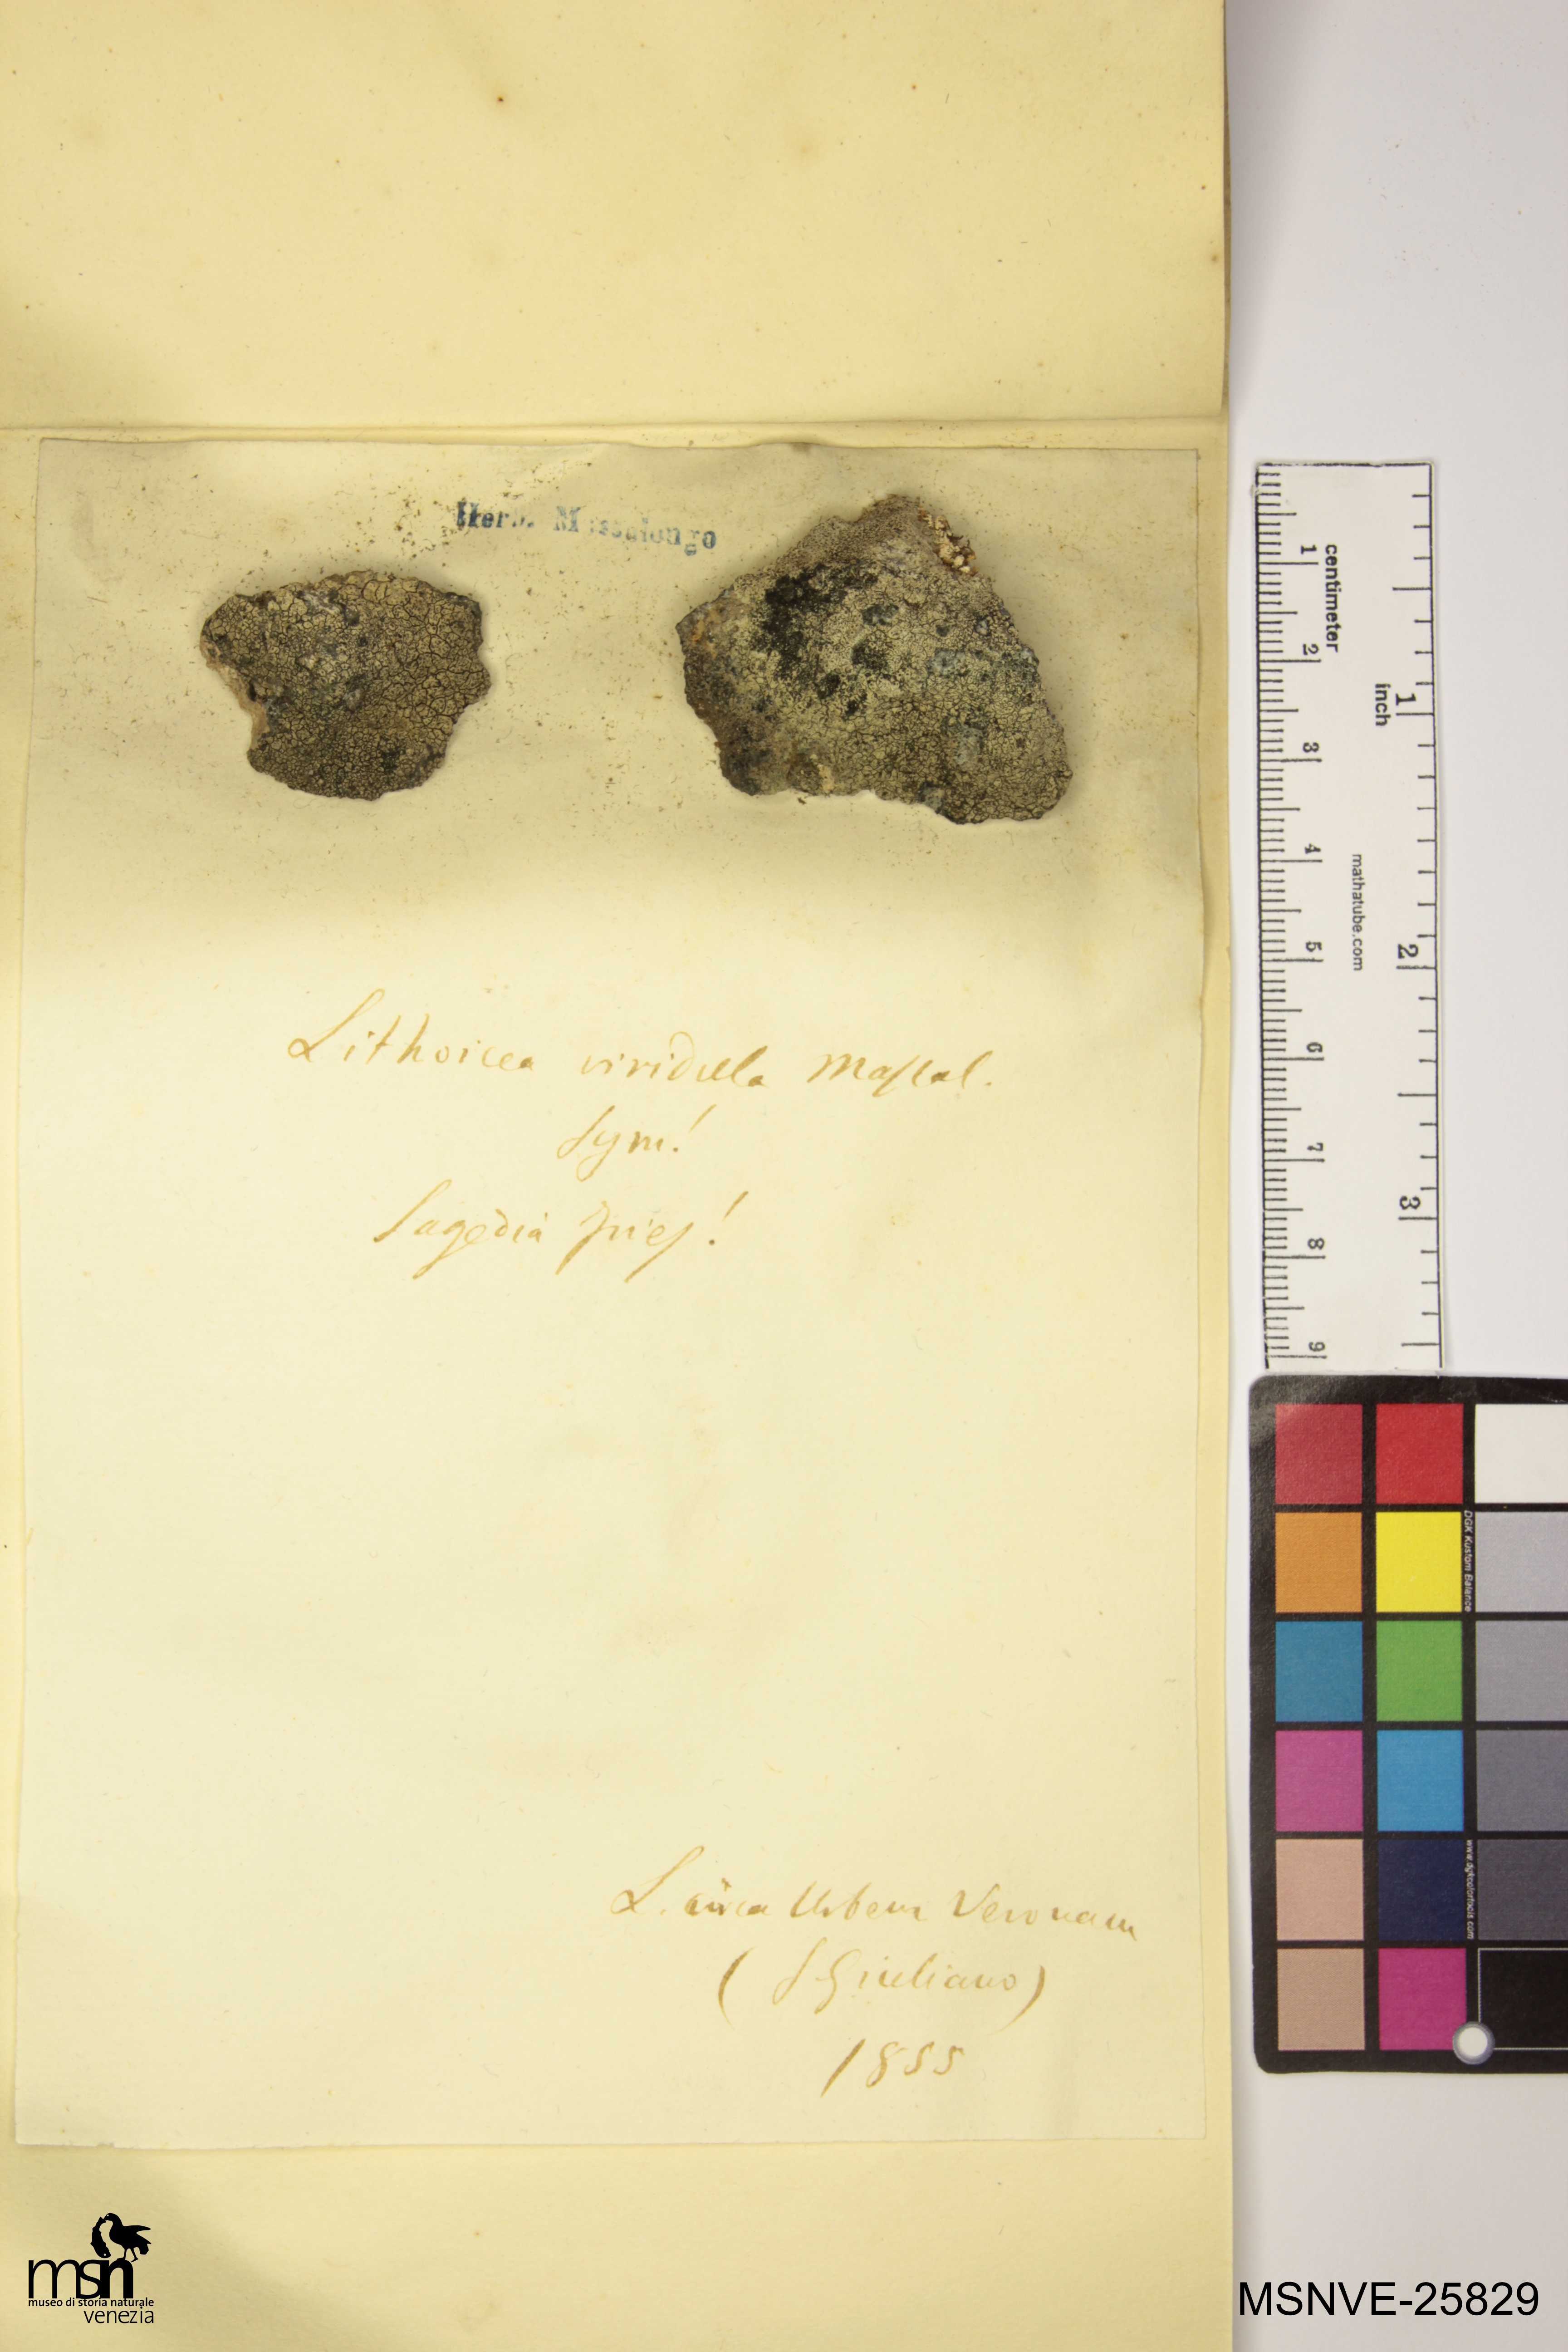 Herb. Massalongo
Lithoicea viridula Massal.
Sym!
Sagedia Fries!
L. circa Urbem Veronam
(S Giuliano)
1855
centimeter
1
2
3
4
5
6
7
8
9
inch
1
2
3
mathatube.com
DGK Kustom Balance
www.dgkcolortools.com
msn
museo di storia naturale
venezia
MSNVE-25829